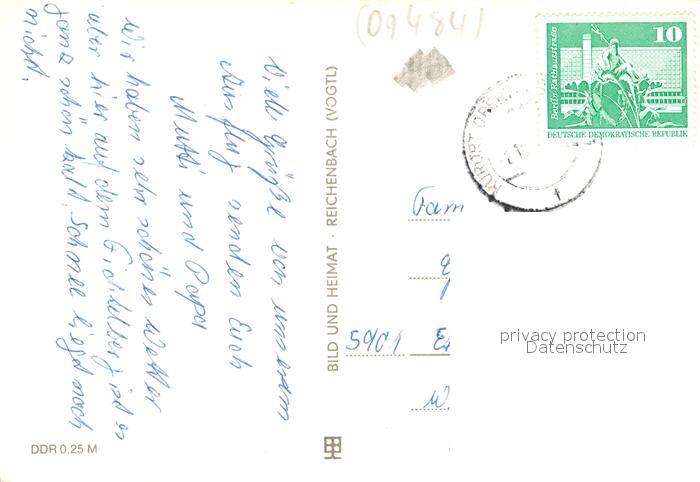 (09484)
Viele Grüße von unserem
Ausflug senden Euch
Mutti und Papa
Wir haben sehr schönes Wetter
aber hier auf dem Fichtelberg ist es
ganz schön kalt, Schnee liegt noch
nicht.
DDR 0,25 M
BILD UND HEIMAT · REICHENBACH (VOGTL)
10
Berlin Rathausstraße
DEUTSCHE DEMOKRATISCHE REPUBLIK
KURORT
Fam
5901
privacy protection
Datenschutz